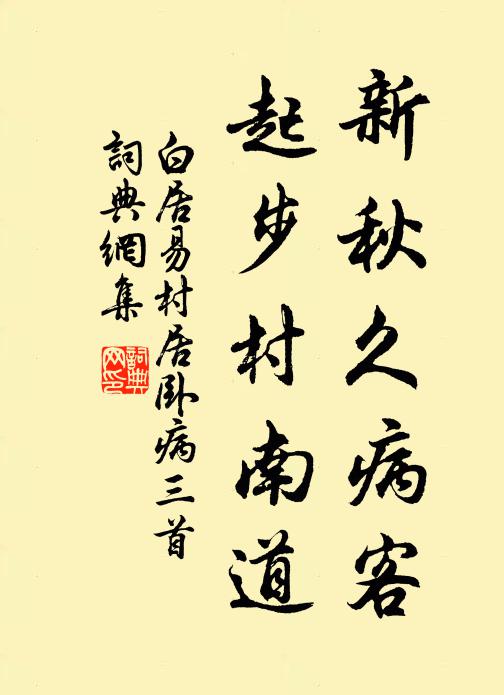 新秋久病客
起步村南道
白居易村居卧病三首
詞典網集
詞典
网印